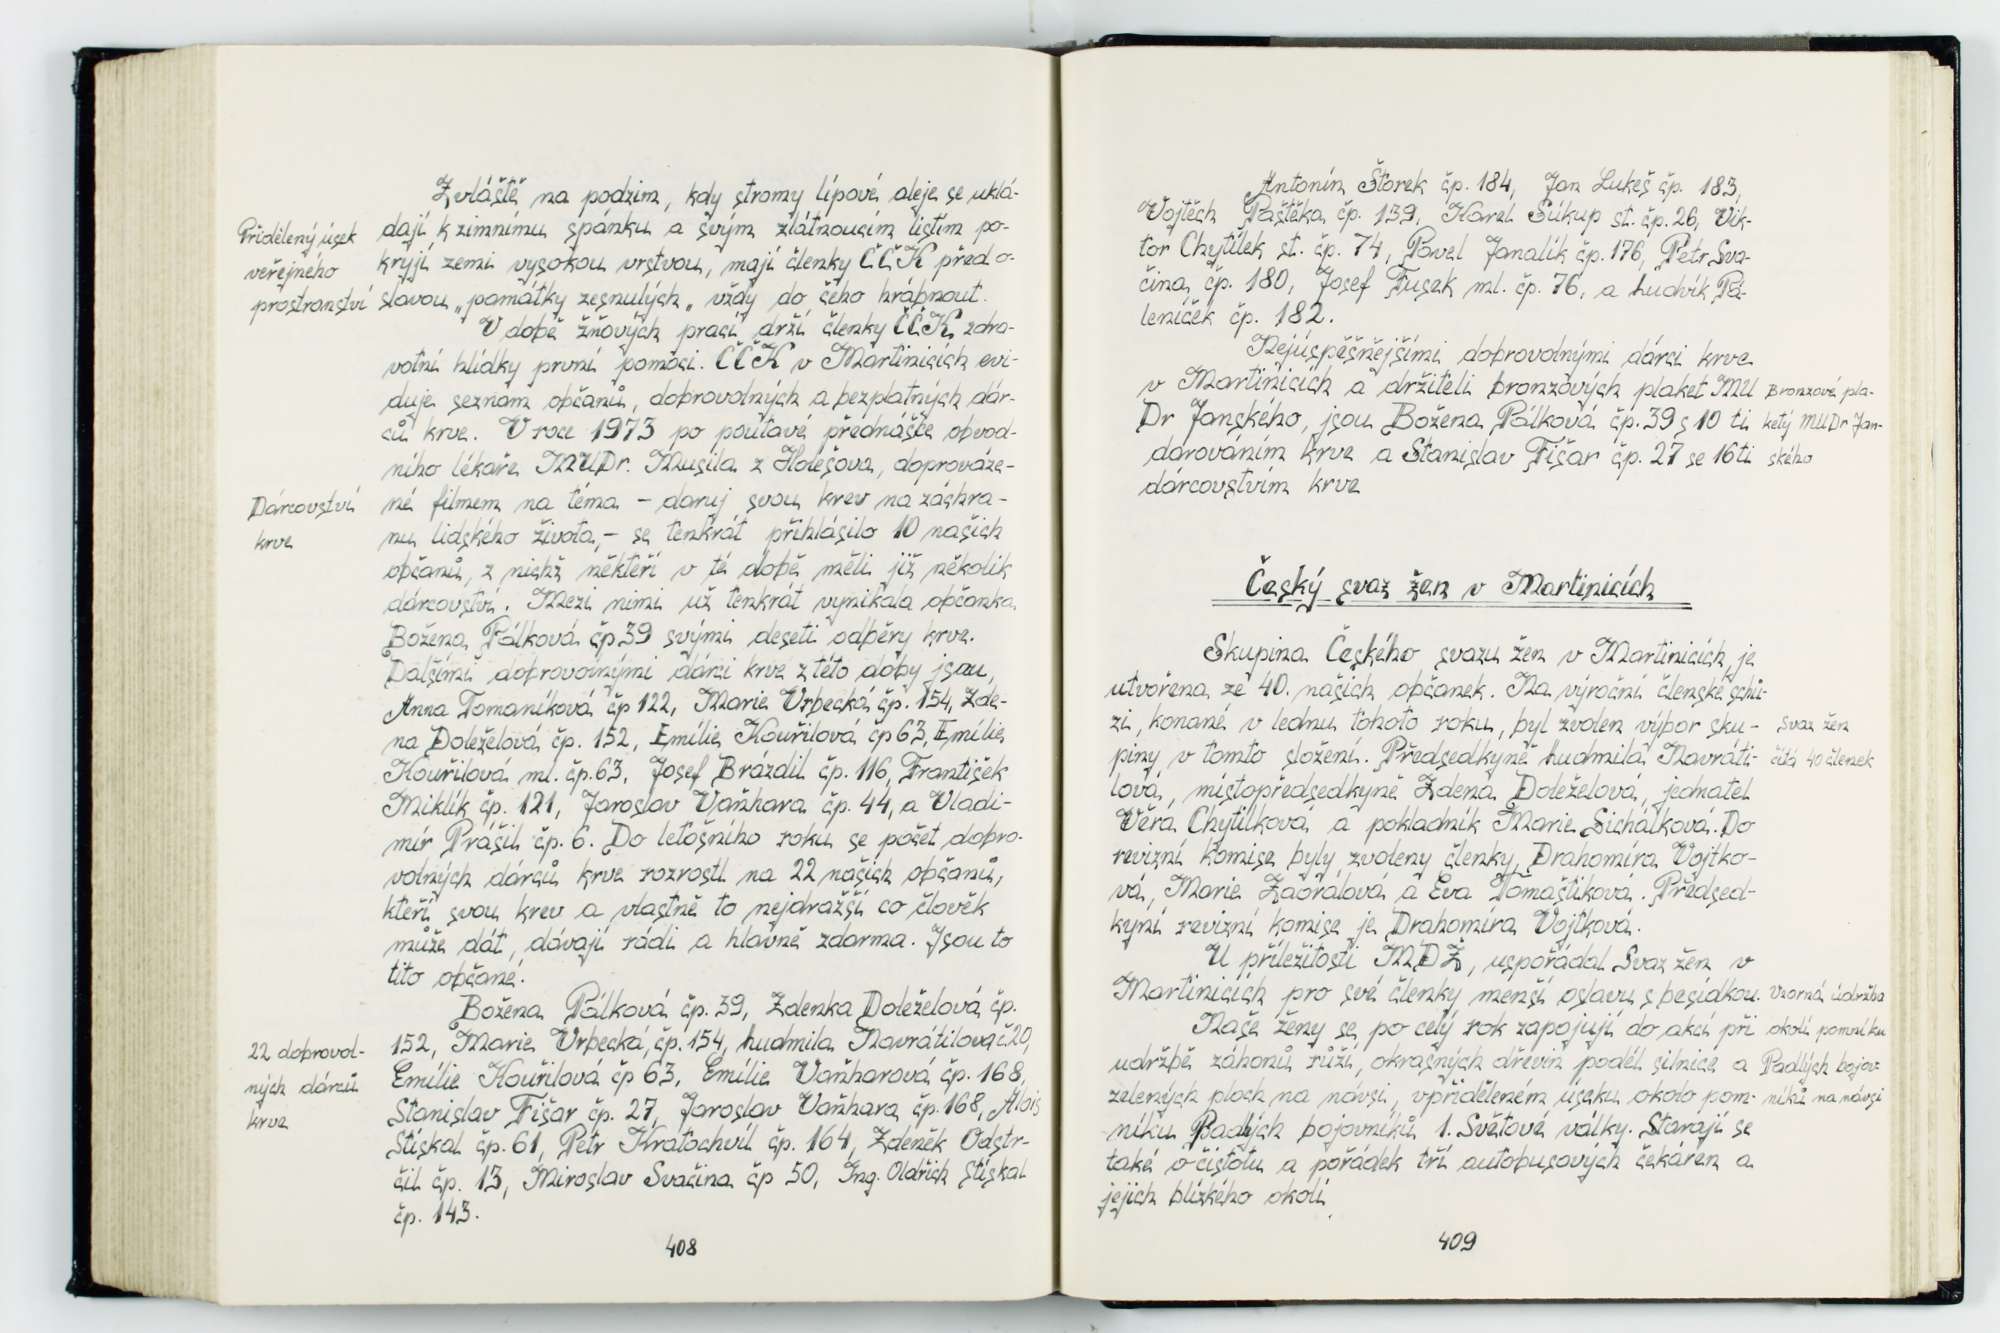 Zvláště na podzim, kdy stromy lípové aleje se uklá-
Přidělený úsek
veřejného
prostranství
dají k zimnímu spánku a svým zlátnoucím listím po-
kryjí zemi vysokou vrstvou, mají členky ČČK před o-
slavou „památky zesnulých„ vždy do čeho hrábnout.
V době žňových prací drží členky ČČK zdra-
votní hlídky první pomoci. ČČK v Martinicích evi-
duje seznam občanů, dobrovolných a bezplatných dár-
ců krve. V roce 1973 po poutavé přednášce obvod-
ního lékaře MUDr. Musila z Holešova, doprováze-
Dárcovství
krve
né filmem na téma – daruj svou krev na záchra-
nu lidského života,– se tenkrát přihlásilo 10 našich
občanů, z nichž někteří v té době měli již několik
dárcovství. Mezi nimi už tenkrát vynikala občanka
Božena Pálková čp 39 svými deseti odběry krve.
Dalšími dobrovolnými dárci krve z této doby jsou,
Anna Tomaníková čp 122, Marie Vrbecká čp. 154, Zde-
na Doleželová čp. 152, Emílie Kouřilová čp 63, Emílie
Kouřilová ml. čp. 63, Josef Brázdil čp. 116, František
Miklík čp. 121, Jaroslav Vaňhara čp. 44, a Vladi-
mír Prášil čp. 6. Do letošního roku se počet dobro-
volných dárců krve rozrostl na 22 našich občanů,
kteří svou krev a vlastně to nejdražší co člověk
může dát, dávají rádi a hlavně zdarma. Jsou to
tito občané.
Božena Pálková čp. 39, Zdenka Doleželová čp.
22 dobrovol-
ných dárců
krve
152, Marie Vrbecká, čp. 154, Ludmila Navrátilová č 20,
Emílie Kouřilová čp 63, Emílie Vaňharová čp. 168,
Stanislav Fišar čp. 27, Jaroslav Vaňhara čp. 168, Alois
Stískal čp. 61, Petr Kratochvíl čp. 164, Zdeněk Odstr-
čil čp. 13, Miroslav Svačina čp 50, Ing. Oldřich Stískal
čp. 143.
408
Antonín Štorek čp. 184, Jan Lukeš čp. 183,
Vojtěch Paštěka čp. 139, Karel Súkup st. čp. 26, Vik-
tor Chytílek st. čp. 74, Pavel Janalík čp. 176, Petr Sva-
čina čp. 180, Josef Fusek ml. čp. 76, a Ludvík Pá-
leníček čp. 182.
Nejúspěšnějšími dobrovolnými dárci krve
v Martinicích a držiteli bronzových plaket MU
Dr Janského, jsou Božena Pálková čp. 39 s 10 ti
dárováním krve a Stanislav Fišar čp. 27 se 16ti
dárcovstvím krve
Bronzové pla-
kety MUDr Jan-
ského
Český svaz žen v Martinicích
Skupina Českého svazu žen v Martinicích, je
utvořena ze 40. našich občanek. Na výroční členské schů-
zi, konané v lednu tohoto roku, byl zvolen výbor sku-
piny v tomto složení. Předsedkyně Ludmila Navráti-
Svaz žen
čítá 40 členek
lová, místopředsedkyně Zdena Doleželová, jednatel
Věra Chytilková a pokladník Marie Sichálková. Do
revizní komise byly zvoleny členky, Drahomíra Vojtko-
vá, Marie Zaoralová a Eva Tomaštíková. Předsed-
kyní revizní komise je Drahomíra Vojtková.
U příležitosti MDŽ, uspořádal Svaz žen v
Martinicích pro své členky menší oslavu s besídkou.
Naše ženy se po celý rok zapojují do akcí při
udržbě záhonů růží, okrasných dřevin podél silnice a
zelených ploch na návsi, v přiděleném úseku okolo pom-
Vzorná údržba
okolí pomníku
Padlých bojov
níků na návsi
níku Padlých bojovníků 1. Světové války. Starají se
také o čistotu a pořádek tří autobusových čekáren a
jejich blízkého okolí.
409